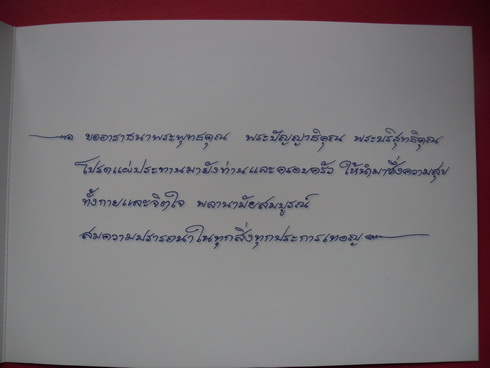 ขออาราธนาพระพุทธคุณ พระปัญญาธิคุณ พระบริสุทธิคุณ
โปรดแผ่ประทานมายังท่านและครอบครัว ให้นำมาซึ่งความสุข
ทั้งกายและจิตใจ พลานามัยสมบูรณ์
สมความปรารถนาในทุกสิ่งทุกประการเทอญ